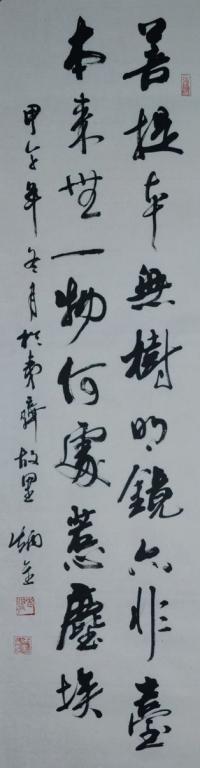 菩提本無樹明鏡亦非臺
本來無一物何處惹塵埃
甲午年冬月於東齊故里炳金